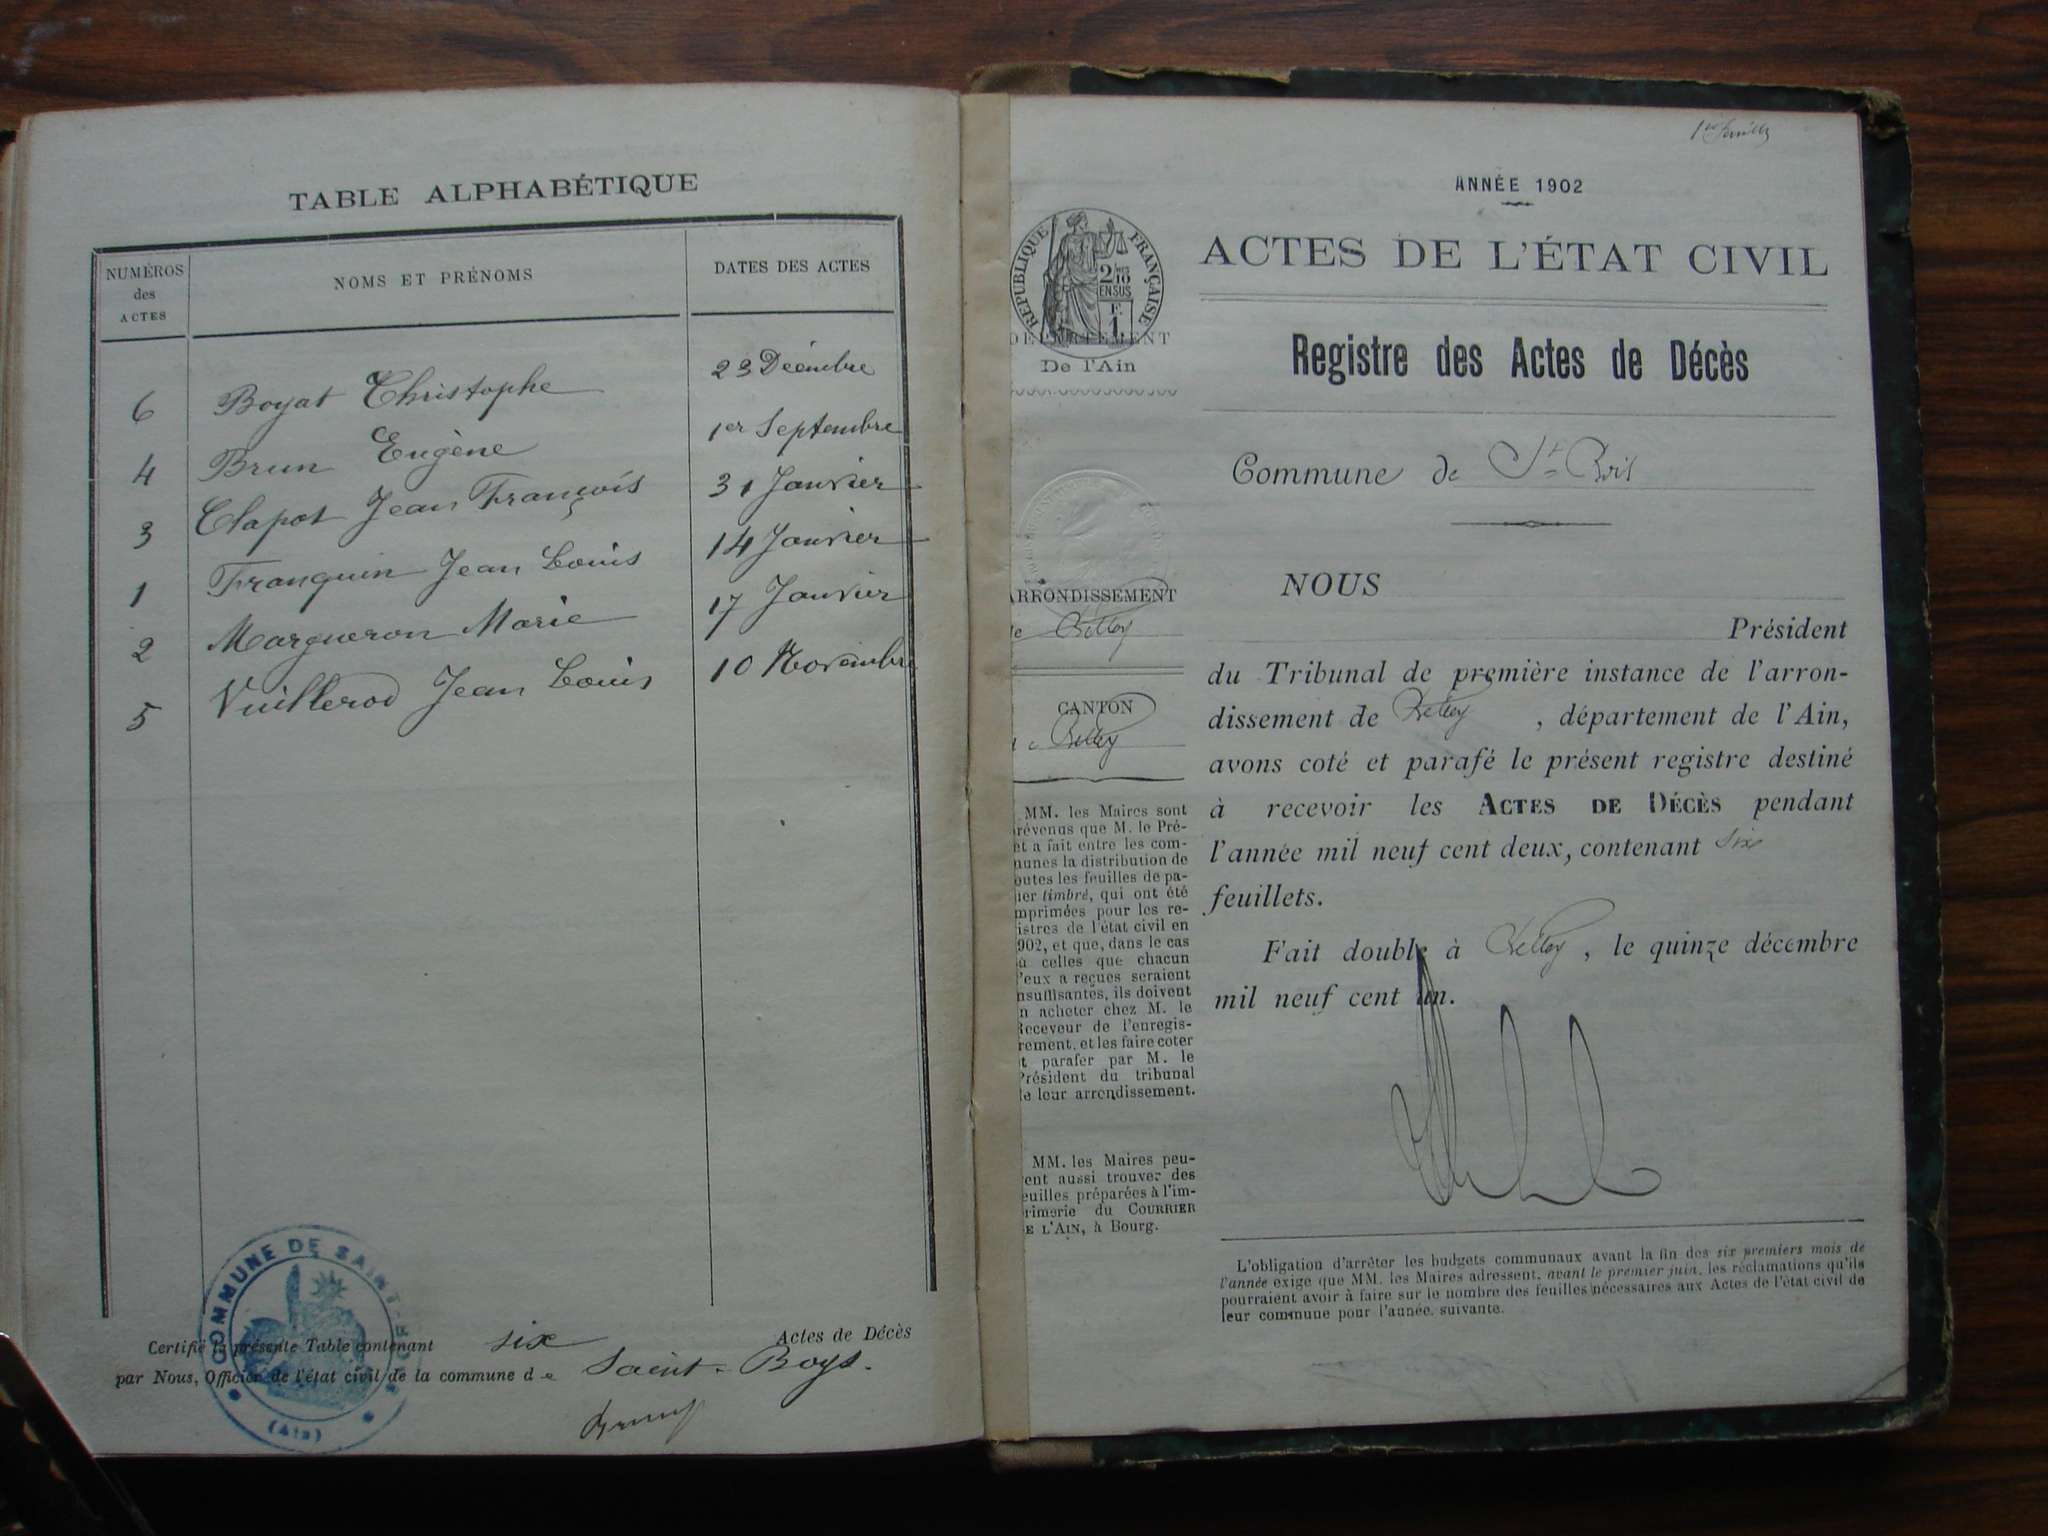 TABLE ALPHABÉTIQUE
NUMÉROS des ACTES
NOMS ET PRÉNOMS
DATES DES ACTES
6 Boyat Christophe 23 Décembre
4 Brun Eugène 1er Septembre
3 Clapot Jean François 31 Janvier
1 Franquin Jean Louis 14 Janvier
2 Margueron Marie 17 Janvier
5 Vuillerod Jean Louis 10 Novembre
Certifié la présente Table contenant six Actes de Décès
par Nous, Officier de l'état civil de la commune de Saint-Boys.
COMMUNE DE SAINT
(Ain)
ANNÉE 1902
ACTES DE L'ÉTAT CIVIL
RÉPUBLIQUE FRANÇAISE
EN SUS
DÉPARTEMENT
De l'Ain
Registre des Actes de Décès
Commune de St
ARRONDISSEMENT
Belley
CANTON
Belley
NOUS
Président
du Tribunal de première instance de l'arron-
dissement de Belley, département de l'Ain,
avons coté et parafé le présent registre destiné
à recevoir les ACTES DE DÉCÈS pendant
l'année mil neuf cent deux, contenant six
feuillets.
Fait double à Belley, le quinze décembre
mil neuf cent un.
MM. les Maires sont
révenus que M. le Pré-
et a fait entre les com-
munes la distribution de
outes les feuilles de pa-
ier timbré, qui ont été
mprimées pour les re-
istres de l'état civil en
902, et que, dans le cas
ù celles que chacun
'eux a reçues seraient
nsuffisantes, ils doivent
n acheter chez M. le
Receveur de l'enregis-
rement, et les faire coter
t parafer par M. le
Président du tribunal
e leur arrondissement.
MM. les Maires peu-
ent aussi trouver des
euilles préparées à l'im-
rimerie du COURRIER
E L'AIN, à Bourg.
L'obligation d'arrêter les budgets communaux avant la fin des six premiers mois de
l'année exige que MM. les Maires adressent, avant le premier juin, les réclamations qu'ils
pourraient avoir à faire sur le nombre des feuilles nécessaires aux Actes de l'état civil de
leur commune pour l'année suivante.